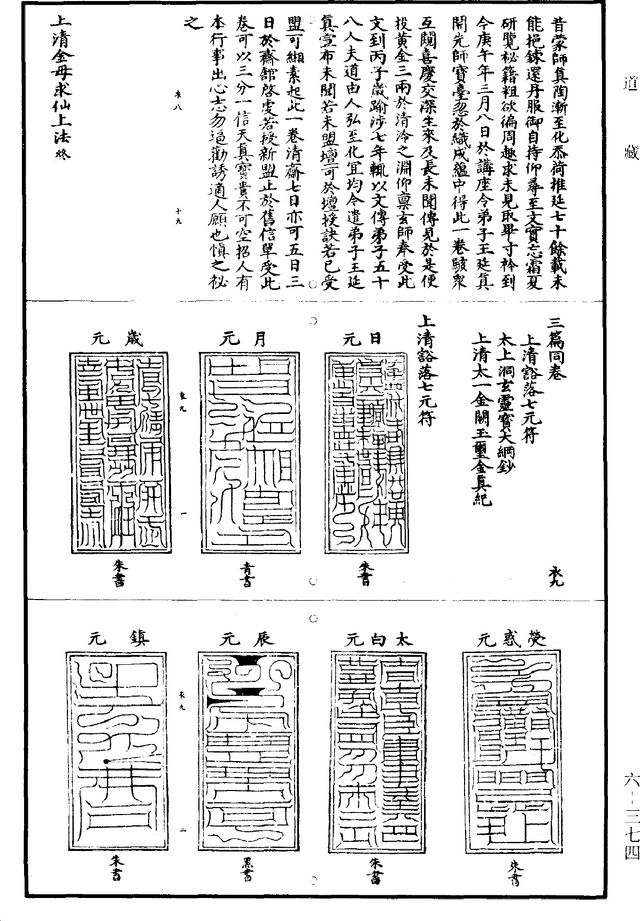 道藏
昔蒙師真陶漸至化忝荷推延七十餘載未
能挹鍊還丹服御自持仰尋至文寶忘霜夏
研覽秘籍粗欲徧周趣求未見取畢寸衿到
今庚午年三月八日於講座令弟子王延真
開先師寶臺忽於織成蘊中得此一卷駭衆
互闚喜慶交深生來及長未聞傳見於是便
投黄金三兩於清泠之淵仰稟玄師奉受此
文到丙子歲踰涉七年輒以文傳弟子五十
八人夫道由人弘至化宜均令遣弟子王延
真宣布未聞若未盟壇可於壇授訣若已受
盟可緗素起此一卷清齋七日亦可五日三
日於齋館啓虔若授新盟止於舊信單受此
卷可以三分一信天真寶貴不可空招人有
本行事出心志勿逼勸誘適人願也慎之祕
之
衣八
十九
上清金母求仙上法
終
三篇同卷
衣九
上清豁落七元符
太上洞玄靈寶大綱鈔
上清太一金闕玉璽金真紀
上清豁落七元符
日元
朱書
月元
青書
衣九
一
歲元
朱書
熒惑元
朱書
太白元
朱書
辰元
黑書
衣九
二
鎮元
朱書
六-三七四